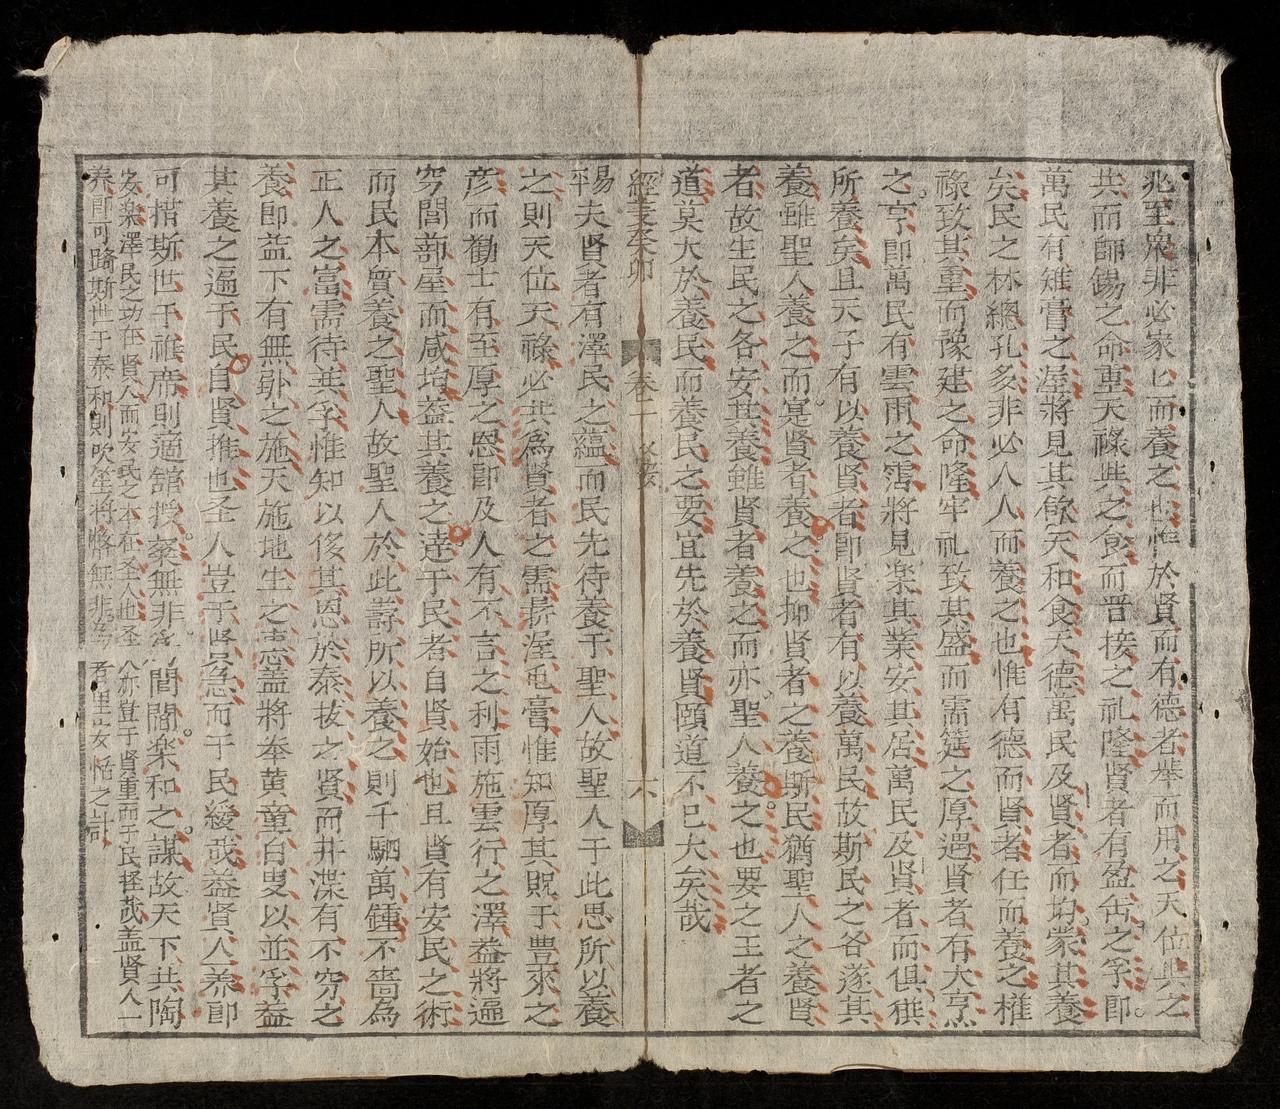 兆至衆非必家匕而養之也惟於賢而有德者举而用之天位共之
共而師錫之命重天祿共之食而晋接之礼隆賢者有盈缶之孚即
萬民有雉膏之渥將見其飲天和食天德萬民及賢者而均蒙其養
矣民之林總孔多非必人人而養之也惟有德而賢者任而養之権
祿致其重而豫建之命隆牢礼致其盛而需筵之厚過賢者有大亨烹
之亨即萬民有雲雨之霑將見楽其業安其居萬民及賢者而俱
所養矣且天子有以養賢者即賢者有以養萬民故斯民之各遂其
養雖聖人養之而寔賢者養之也抑賢者之養斯民猶聖人之養賢
者故生民之各安其養雖賢者養之而亦聖人養之也要之王者之
道莫大於養民而養民之要宜先於養賢頤道不已大矣哉
經義癸卯 卷一 六
易
夫賢者有澤民之蘊而民先待養于聖人故聖人于此思所以養
之則天位天祿必共為賢者之需長渥屯膏惟知厚其貺于豊來之
彦而勸士有至厚之恩即及人有不言之利雨施雲行之澤益將遍
穷閭蔀屋而咸均益其養之達于民者自賢始也且賢有安民之術
而民本質養之聖人故聖人於此壽所以養之則千駟萬鍾不嗇為
正人之富需待共孚惟知以侈其恩於泰拔之賢而井渫有不穷之
養即益下有無卦之施天施地生之恵蓋將奉黄童白叟以並孚益
其養之遍于民自賢推也圣人豈于賢急而于民緩哉益賢人养即
可措斯世于袵席則適舘授粲無非為閭閻楽和之謀故天下共陶
安楽澤民之功在賢人而安民之本在圣人也圣人亦豈于賢重而于民挃哉盖賢人一
养即可躋斯世于泰和則吹笙將幣無非为者里安恬之計